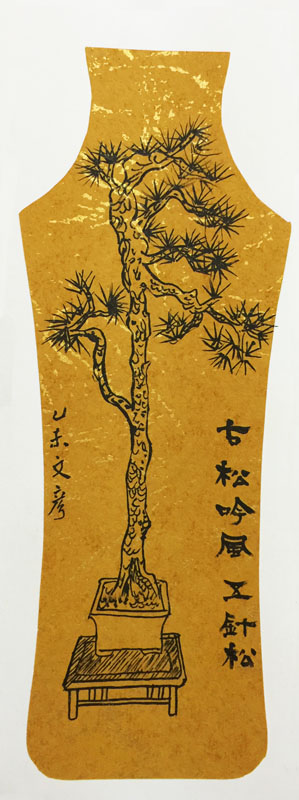 古松吟風 五針松
乙未文彦